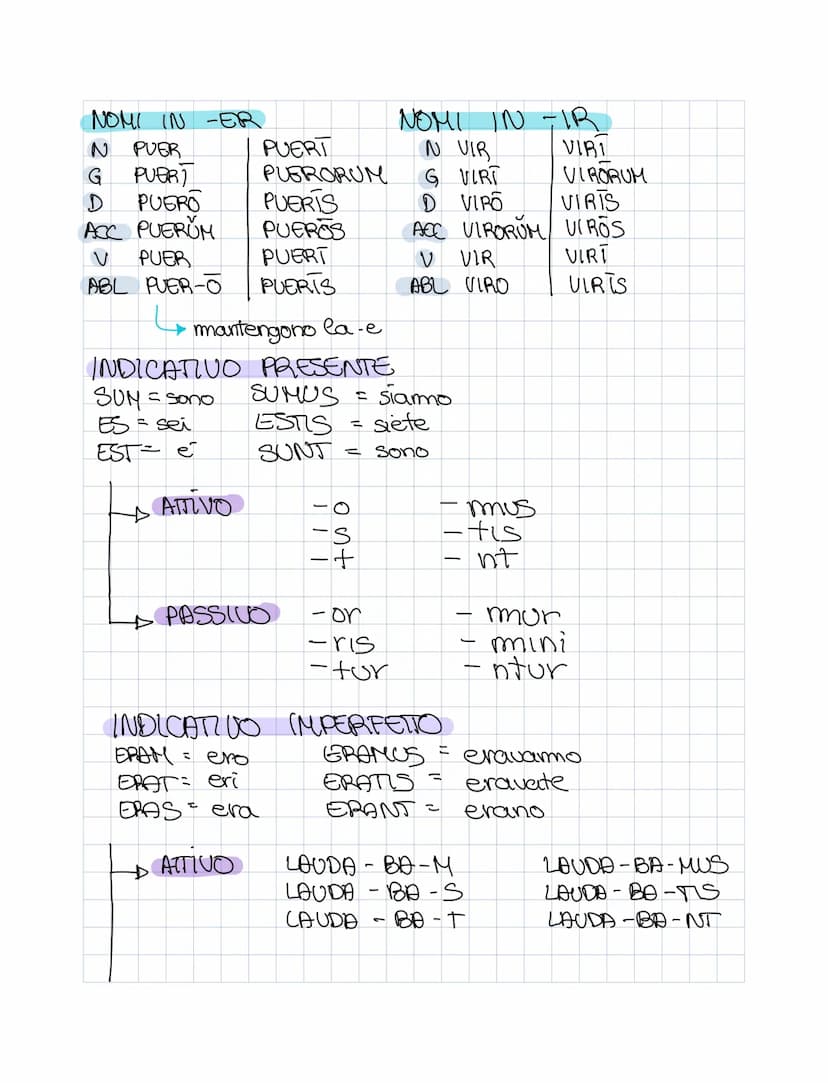 NOMI IN -ER NOMI IN -IR
N PUER PUERĪ N VIR VIRĪ
G PUERĪ PUERORUM G VIRĪ VIRŌRUM
D PUERŌ PUERĪS D VIRŌ VIRĪS
ACC PUERŬM PUERŌS ACC VIRORŬM VIRŌS
V PUER PUERĪ V VIR VIRĪ
ABL PUER-Ō PUERĪS ABL VIRO VIRĪS
mantengono la -e
INDICATIVO PRESENTE
SUM = sono SUMUS = siamo
ES = sei ESTIS = siete
EST = é SUNT = sono
ATTIVO -o -mus
-s -tis
-t -nt
PASSIVO -or -mur
-ris -mini
-tur -ntur
INDICATIVO IMPERFETTO
ERAM = ero ERAMUS = eravamo
ERAT = eri ERATIS = eravate
ERAS = era ERANT = erano
ATTIVO LAUDA - BA - M LAUDA - BA - MUS
LAUDA - BA - S LAUDA - BA - TIS
LAUDA - BA - T LAUDA - BA - NT